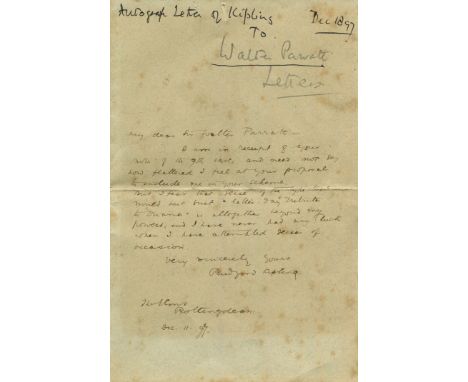 Autograph Letter of Kipling Dec 1897
To
Walter Parratt
Letters
My dear Sir Walter Parratt -
I am in receipt of your
note of the 9th and need not say
how flattered I feel at your proposal
to include me in your scheme.
But I fear that
would but a
to Diana" is altogether beyond my
powers, and I have never had any luck
when I have attempted verse of
occasion
Very sincerely yours
Rudyard Kipling
Rottingdean
Dec. 11. 97.